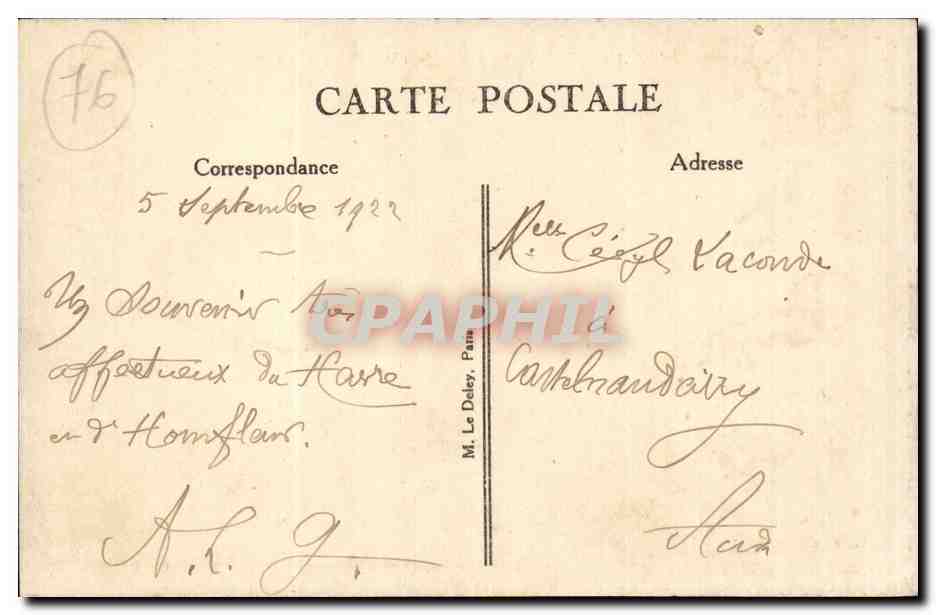 76
CARTE POSTALE
Correspondance
5 Septembre 1922
Un souvenir très
affectueux du Havre
et d'Homfleur.
A. L. G.
M. Le Deley, Paris
Adresse
Melle Cécyl Laconde
à
Castelnaudarry
Aude
CPAPHIL